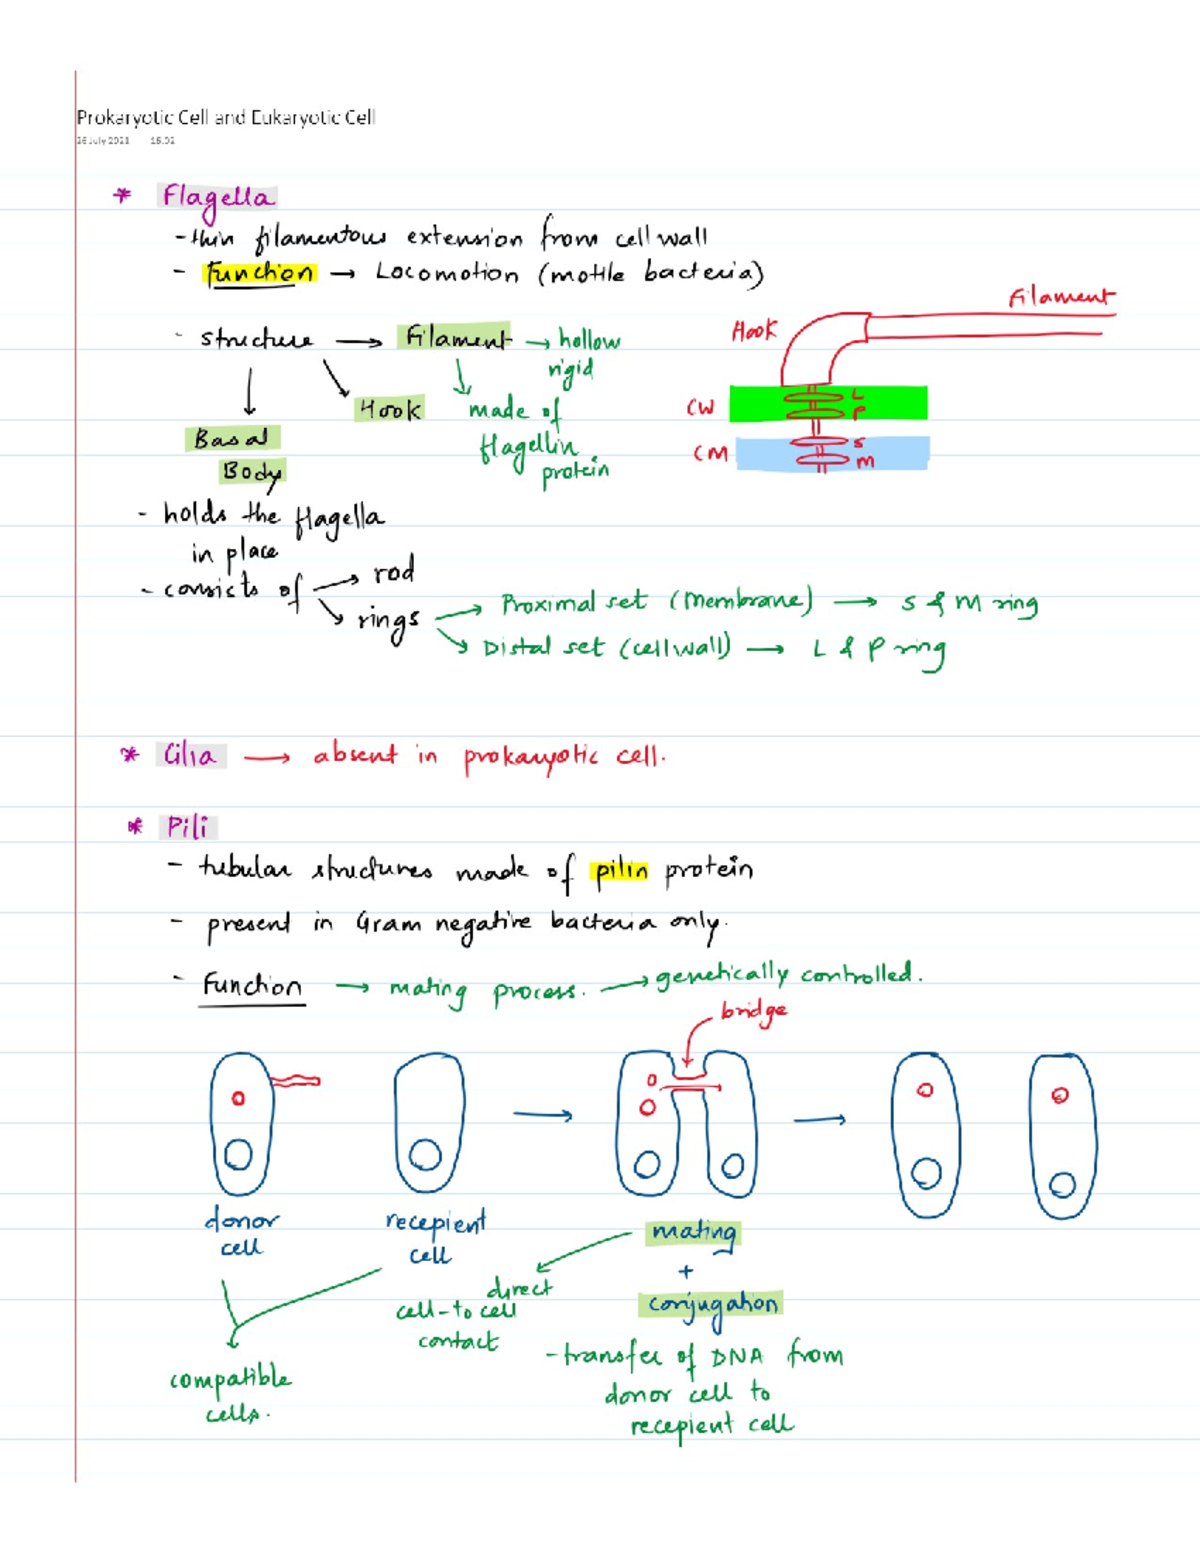 Prokaryotic Cell and Eukaryotic Cell
26 July 2021 15:02
* Flagella
- thin filamentous extension from cell wall
- Function → Locomotion (motile bacteria)
- structure → Filament → hollow
rigid
Hook
made of
flagellin
protein
Basal
Body
Filament
Hook
CW
L
P
CM
S
M
- holds the flagella
in place
- consicts of → rod
→ rings → Proximal set (Membrane) → S & M ring
→ Distal set (cell wall) → L & P ring
* Cilia → absent in prokaryotic cell.
* Pili
- tubular structures made of pilin protein
- present in Gram negative bacteria only.
- Function → mating process. → genetically controlled.
bridge
donor
cell
recepient
cell
mating
+
conjugation
direct
cell-to cell
contact
- transfer of DNA from
donor cell to
recepient cell
compatible
cells.